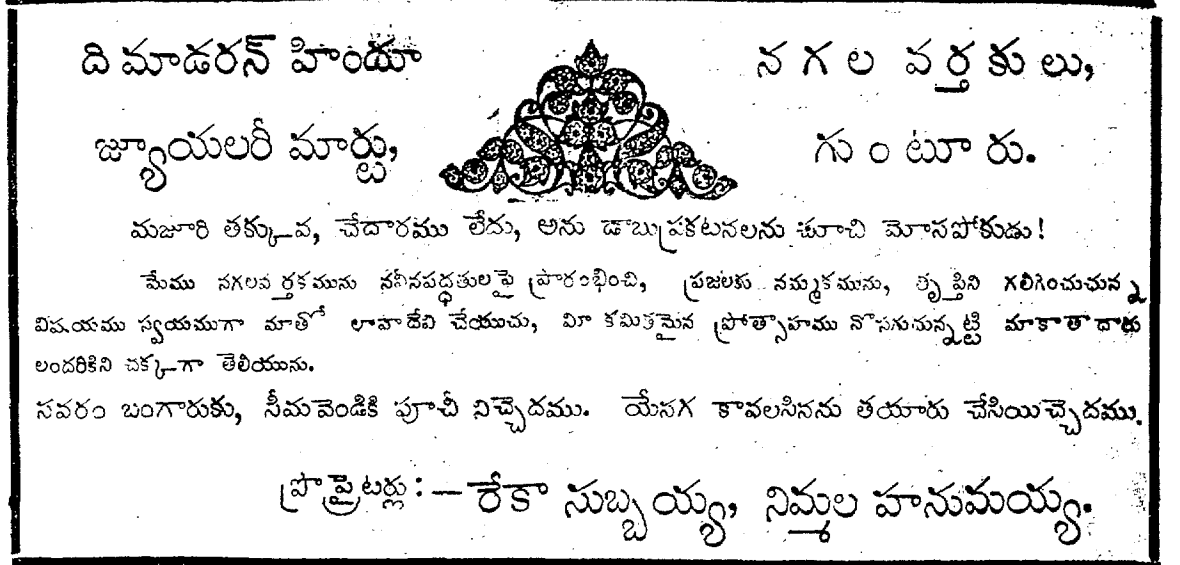 ది మాడరన్ హిందూ
జ్యూయలరీ మార్టు,
నగల వర్తకులు,
గుంటూరు.
మజూరి తక్కువ, చేదారము లేదు, అను డాబుప్రకటనలను చూచి మోసపోకుడు!
మేము నగలవర్తకమును నవీనపద్ధతులపై ప్రారంభించి, ప్రజలకు నమ్మకమును, తృప్తిని గలిగించుచున్న
విషయము స్వయముగా మాతో లావాదేవి చేయుచు, మా కమితమైన ప్రోత్సాహము నొసగుచున్నట్టి మాఖాతాదారు
లందరికిని చక్కగా తెలియును.
సవరం బంగారుకు, సీమవెండికి పూచీ నిచ్చెదము. యేనగ కావలసినను తయారు చేసియిచ్చెదము.
ప్రొప్రైటర్లు:— రేకా సుబ్బయ్య, నిమ్మల హనుమయ్య.